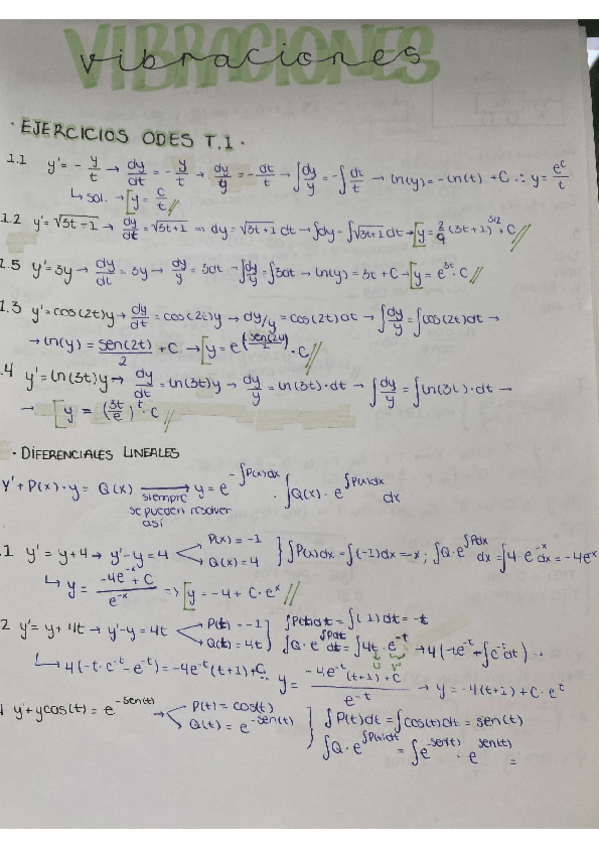 VIBRACIONES
vibraciones
· EJERCICIOS ODES T.1 ·
1.1 y' = - y/t → dy/dt = - y/t → dy/y = - dt/t → ∫dy/y = -∫dt/t → ln(y) = -ln(t) + C ∴ y = e^c/t
↳ sol. → [y = c/t //
1.2 y' = √3t-1 → dy/dt = √3t+1 → dy = √3t+1 dt → ∫dy - ∫√3t+1 dt → [y = 2/9 (3t+1)^3/2 + C //
.5 y' = 3y → dy/dt = 3y → dy/y = 3dt → ∫dy/y = ∫3dt → ln(y) = 3t + C → [y = e^3t · C //
1.3 y' = cos(2t)y → dy/dt = cos(2t)y → dy/y = cos(2t)dt → ∫dy/y = ∫cos(2t)dt →
→ ln(y) = sen(2t)/2 + C → [y = e^(sen(2t)/2) · C //
.4 y' = ln(3t)y → dy/dt = ln(3t)y → dy/y = ln(3t)·dt → ∫dy/y = ∫ln(3t)·dt →
→ [y = (3t/e)^t · C //
· DIFERENCIALES LINEALES
y' + P(x)·y = Q(x) → siempre se pueden resolver así y = e^-∫P(x)dx · ∫Q(x)· e^∫P(x)dx dx
.1 y' = y+4 → y'-y = 4 < P(x) = -1 Q(x) = 4 } ∫P(x)dx = ∫(-1)dx = -x ; ∫Q·e^∫Pdx dx = ∫4·e^-x dx = -4e^-x
↳ y = -4e^-x + C / e^-x => [y = -4 + C·e^x //
2 y' = y + 4t → y'-y = 4t < P(t) = -1 Q(t) = 4t } ∫P(t)dt = ∫(-1)dt = -t
∫Q·e^∫Pdt dt = ∫4t·e^-t → 4(-te^-t + ∫e^-t dt) ..
↳ 4(-t·e^-t - e^-t) = -4e^-t(t+1) + C ∴ y = -4e^-t(t+1) + C / e^-t → y = -4(t+1) + C·e^t
y' + ycos(t) = e^-sen(t) → < P(t) = cos(t) Q(t) = e^-sen(t) } ∫P(t)dt = ∫cos(t)dt = sen(t)
∫Q·e^∫P(t)dt = ∫e^-sen(t) · e^sen(t) =